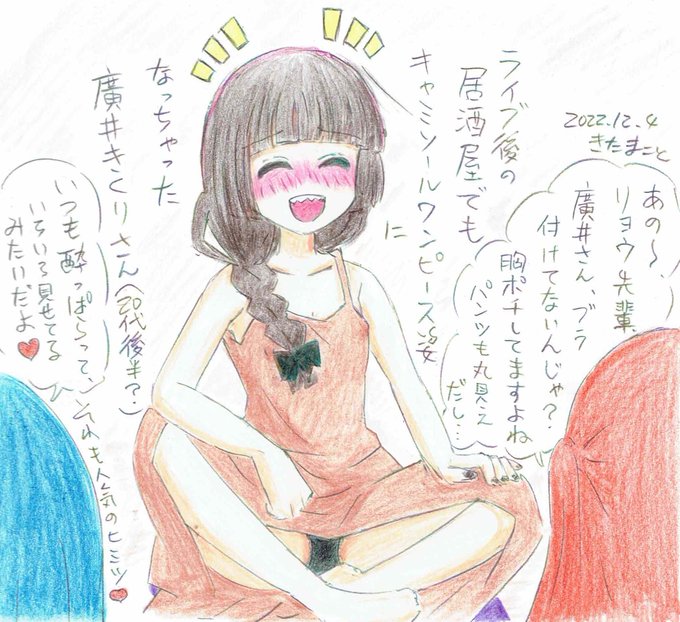 2022.12.4
きたまこと
ライブ後の
居酒屋でも
キャミソールワンピース姿
に
なっちゃった
廣井きくりさん(20代後半?)
あの〜、
リョウ先輩、
廣井さん、ブラ
付けてないんじゃ?
胸ポチしてますよね
パンツも丸見え
だし…
いつも酔っぱらって、
いろいろ見せてる
みたいだよ♥
それも人気のヒミツ♥